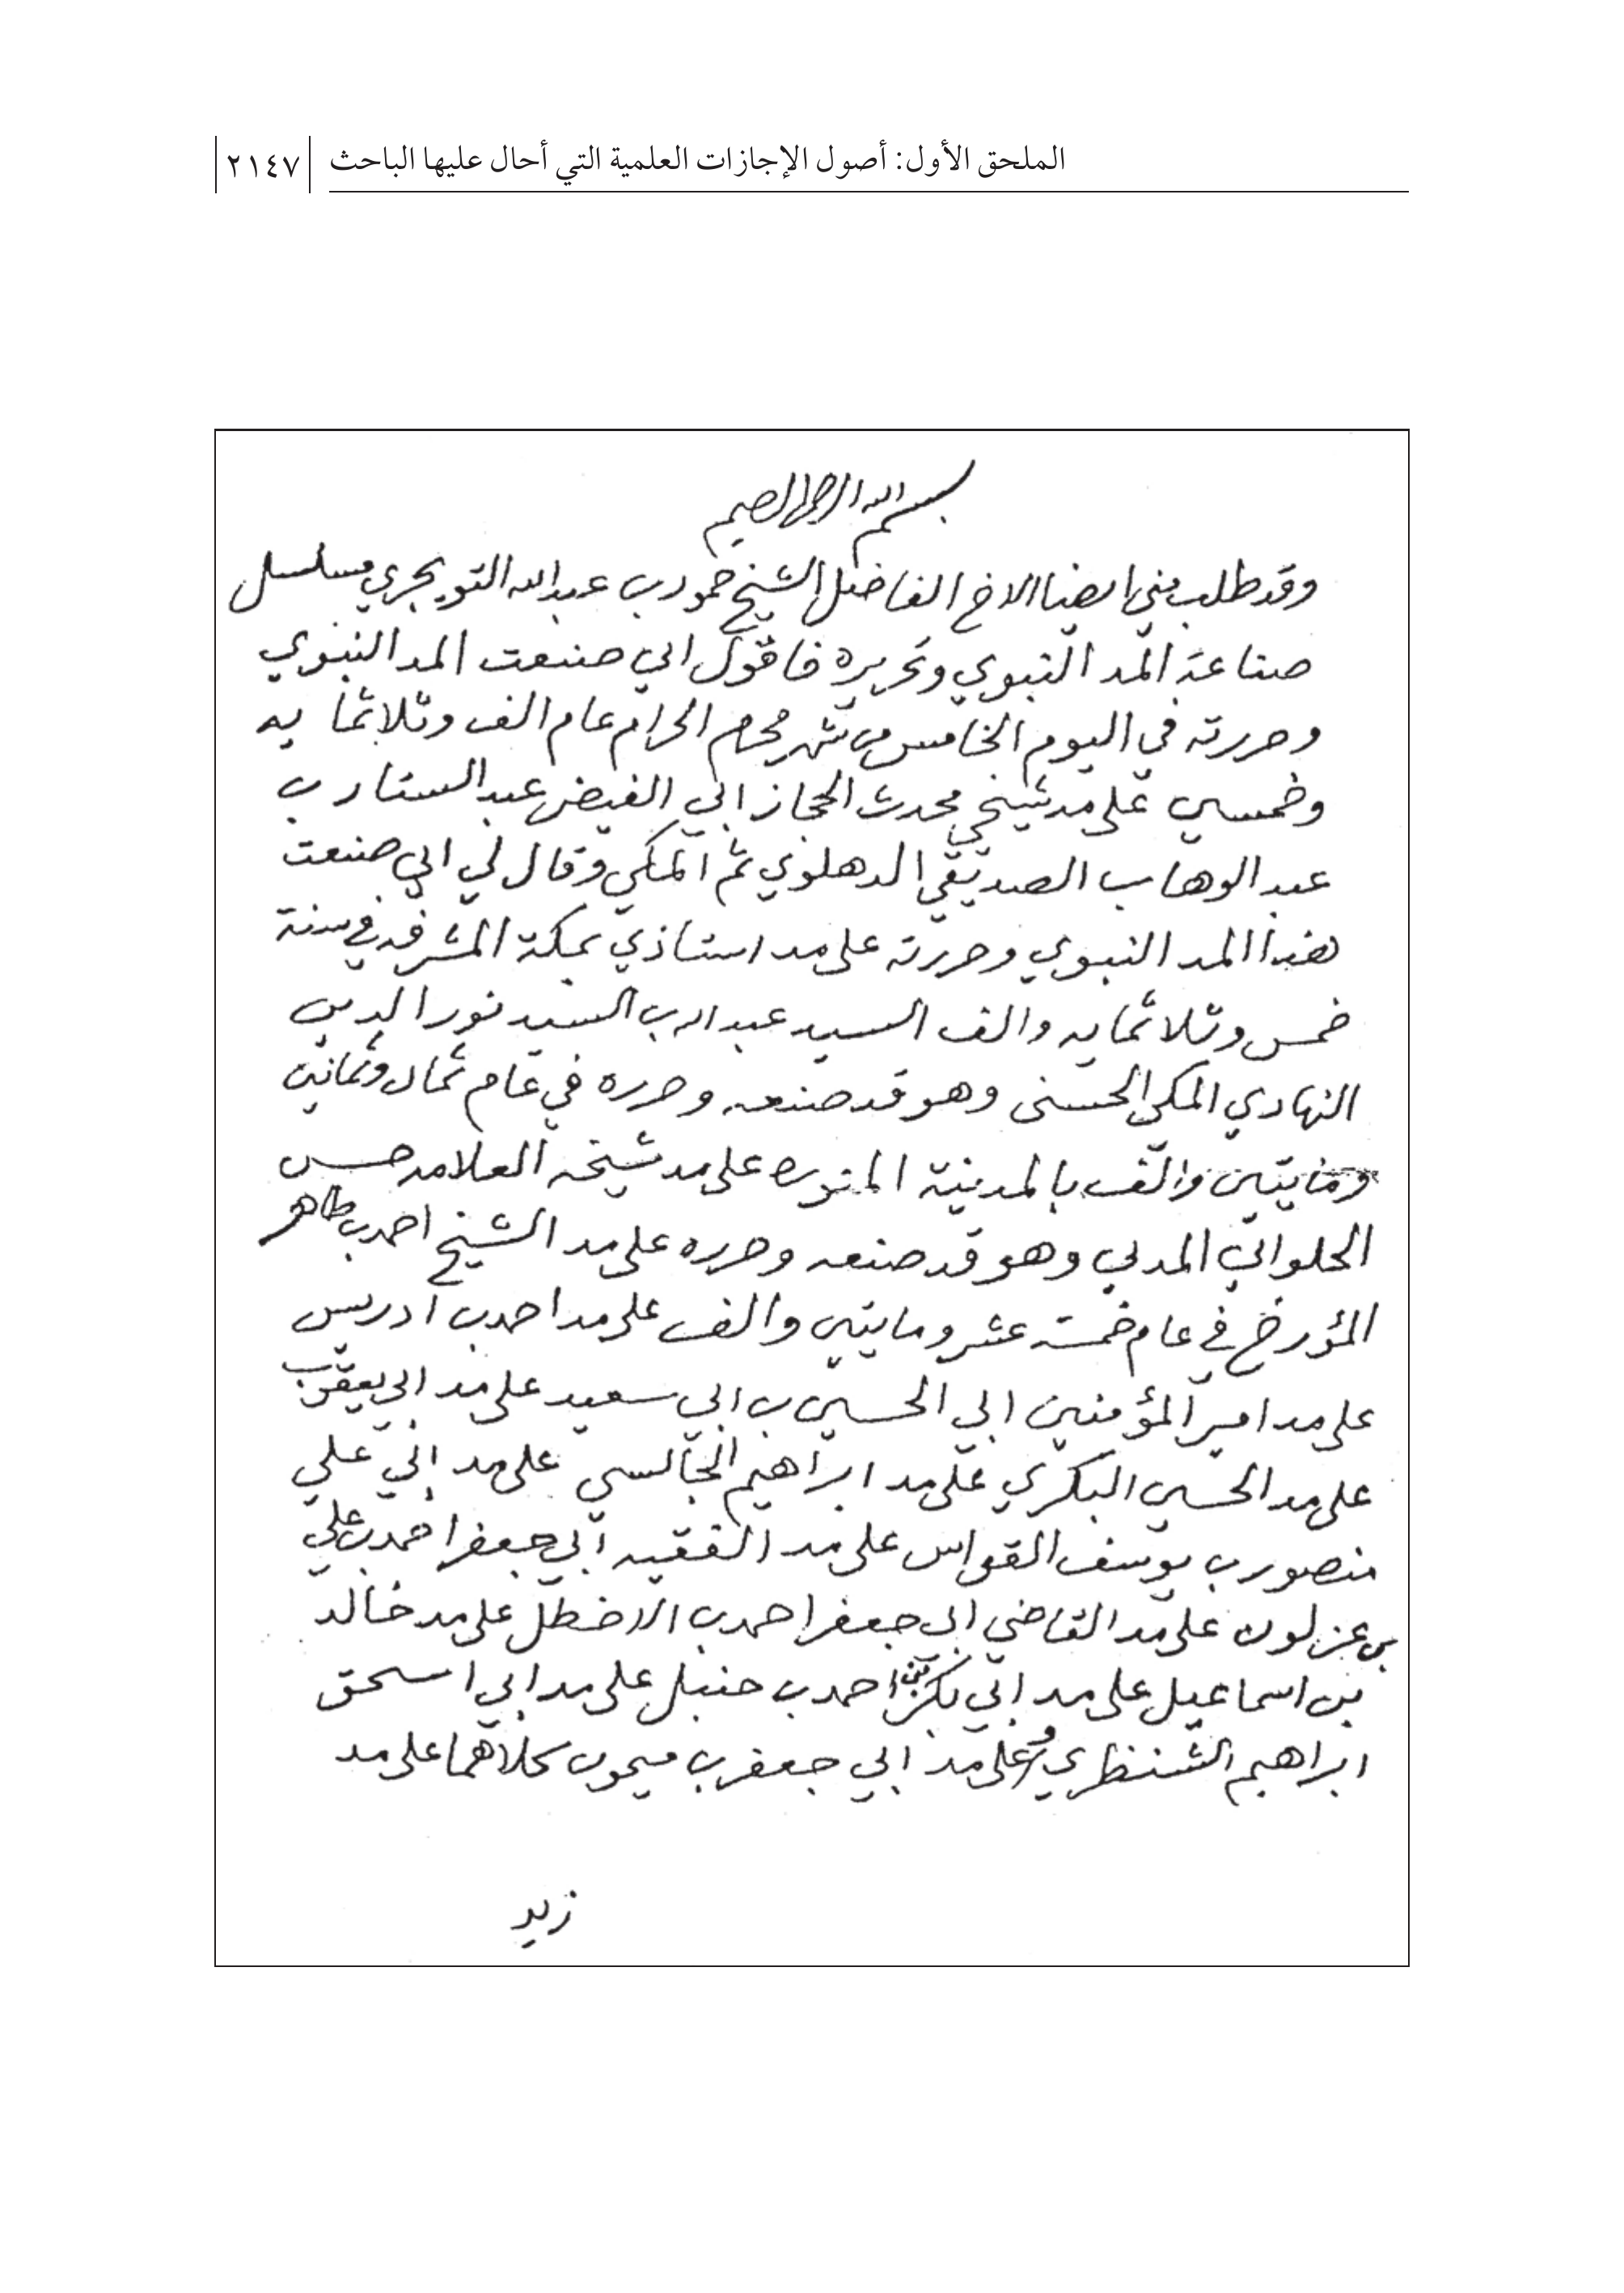 الملحق الأول: أصول الإجازات العلمية التي أحال عليها الباحث ٢١٤٧
بسم الله الرحمن الرحيم
وقد طلب مني ايضا الاخ الفاضل الشيخ حمود بن عبد الله التويجري مسلسل
صناعة المد النبوي وتحريره فاقول اني صنعت المد النبوي
وحررته في اليوم الخامس من شهر محرم الحرام عام الف وثلاثمايه
وخمسين على مد شيخي محدث الحجاز ابي الفيض عبد الستار بن
عبد الوهاب الصديقي الدهلوي ثم المكي وقال لي اني صنعت
هذا المد النبوي وحررته على مد استاذي بمكة المشرفه في سنة
خمس وثلاثمايه والف السيد عبد الله بن السيد نور الدين
النهاري المكي الحسني وهو قد صنعه وحرره في عام ثمان وثمانين
ومايتين والف بالمدينة المنوره على مد شيخه العلامه حسن
الحلواني المدني وهو قد صنعه وحرره على مد الشيخ احمد بن طاهر
المؤرخ في عام خمسة عشر ومايتين والف على مد احمد بن ادريس
على مد امير المؤمنين ابي الحسين بن ابي سعيد على مد ابي يعقوب
على مد الحسين البكري على مد ابراهيم الجالسي على مد ابي علي
منصور بن يوسف القواس على مد الفقيه ابي جعفر احمد بن علي
بن عزلون على مد القاضي ابي جعفر احمد بن الاخطل على مد خالد
بن اسماعيل على مد ابي بكر بن احمد بن حنبل على مد ابي اسحق
ابراهيم الشنظري وعلى مد ابي جعفر بن ميمون كلاهما على مد
زيد